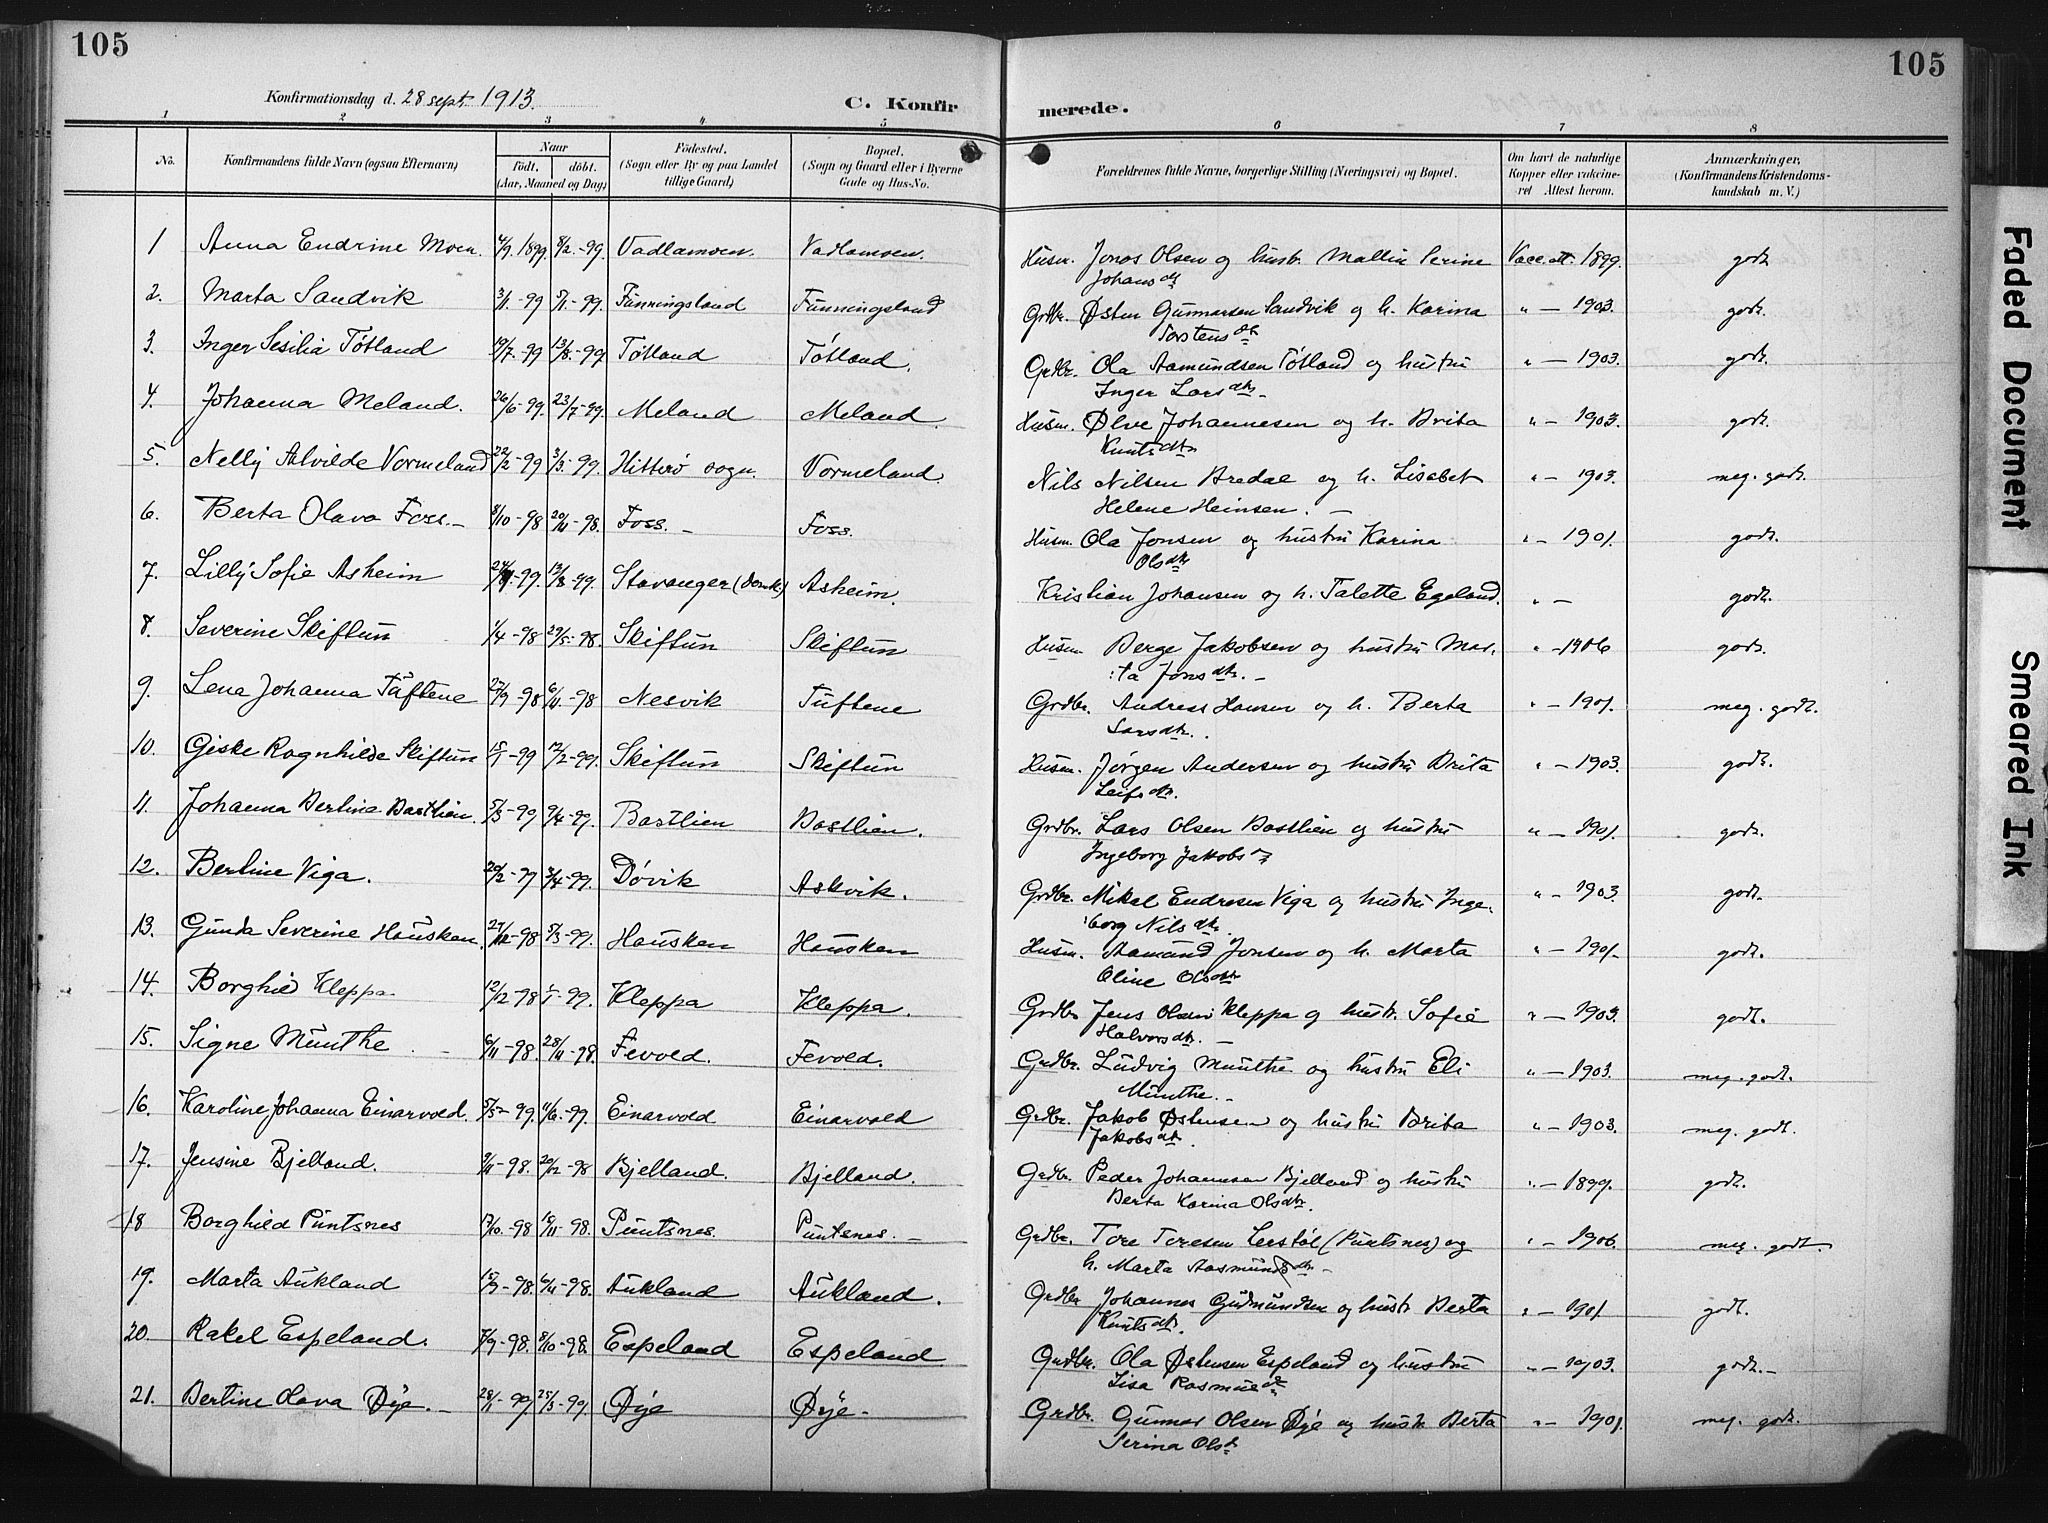 105
105
Konfirmationsdag d. 28 sept. 1913.
C. Konfirmerede.
1 2 3 4 5 6 7 8
No.
Konfirmandens fulde Navn (ogsaa Efternavn)
Naar
født. døbt.
(Aar, Maaned og Dag)
Fødested.
(Sogn eller By og paa Landet
tillige Gaard)
Bopæl.
(Sogn og Gaard eller i Byerne
Gade og Hus-No.
Forældrenes fulde Navne, borgerlige Stilling (Næringsvei) og Bopæl.
Om havt de naturlige
Kopper eller vakcine-
ret Attest herom.
Anmærkninger,
(Konfirmandens Kristendoms-
kundskab m. V.)
1 Anna Endrine Moen. 4/9 1899 8/2-99. Vadlamoen. Vadlamoen. Husm. Jonas Olsen og hustr. Mallin Serine Vacc. att. 1899. godt
Johansdtr
2. Marta Sandvik 3/1-99 5/1-99. Funningsland Funningsland Grdbr. Østen Gunnarsen Sandvik og h. Karina " — 1903. godt.
Torstensdtr
3. Inger Sesilia Tøtland 19/7-99 13/8-99 Tøtland Tøtland. Grdbr. Ola Aamundsen Tøtland og hustru " — 1903. godt.
Inger Larsdtr. —
4. Johanna Meland. 26/6-99. 23/7-99. Meland Meland. Husm. Ølve Johannesen og h. Brita " — 1903. godt.
Knutsdtr.
5. Nelly Alvilde Vormeland 22/2-99 3/3-99. Hitterø sogn. Vormeland. Nils Nilsen Bredal og h. Lisabet " — 1903. meg. godt.
Helene Heinsen. —
6. Berta Olava Foss. — 8/10-98 20/11-98. Foss. — Foss. Husm. Ola Jonsen og hustru Karina " — 1901. godt.
Olsdtr
7. Lilly Sofie Asheim -99. 13/8-99. Stavanger (Domk.) Asheim. Kristian Johansen og h. Talette Egeland. " — godt.
8. Severine Skiftun 1/4-98 29/5-98. Skiftun Skiftun Husm. Berge Jakobsen og hustru Mar- " — 1906 godt.
:ta Jonsdtr. —
9. Lena Johanna Tuftene 27/9-98 6/11-98 Nesvik Tuftene Grdbr. Andreas Hansen og h. Berta " — 1901. meg. godt.
Larsdtr.
10. Giske Ragnhilde Skiftun 15/1-99 12/2-99. Skiftun Skiftun Husm. Jørgen Andersen og hustru Brita " — 1903. godt.
Leifsdtr.
11. Johanna Bertine Bastlien. 5/3-99 9/4-99. Bastlien Bastlien. Grdbr. Lars Olsen Bastlien og hustru " — 1901. godt.
Ingeborg Jakobsdtr
12. Bertine Viga. 20/2-99 3/4-99. Døvik Askvik. Grdbr. Mikel Endresen Viga og hustru Inge- " — 1903. godt.
:borg Nilsdtr.
13. Gunda Severine Hausken. 27/12-98 5/3-99. Hausken Hausken Husm. Aamund Jonsen og h. Marta " — 1901. godt.
Oline Olsdtr
14. Borghild Kleppa 12/12-98 -99. Kleppa Kleppa. Grdbr Jens Olsen Kleppa og hustr. Sofie " — 1903. godt.
Halvorsdtr. —
15. Signe Munthe 6/11-98. 28/11-98. Fevold. Fevold. Grdbr. Ludvig Munthe og hustru Eli " — 1903. meg. godt.
Munthe. —
16. Karoline Johanna Einarvold. 5/5-99. 11/6-99. Einarvold Einarvold Grdbr. Jakob Østensen og hustru Brita " — 1903. meg. godt.
Jakobsdtr.
17. Jensine Bjelland. 9/11-98. 20/12-98 Bjelland. Bjelland. Grdbr. Peder Johannsen Bjelland og hustru " — 1899. godt.
Berta Karina Olsdtr.
18 Borghild Puntsnes 17/10-98 16/11-98. Puntsnes. Puntsnes. — Grdbr. Tore Toresen Lerstøl (Puntsnes) og " — 1906. meg. godt.
h. Marta Aasmundsdtr. —
19. Marta Aukland 15/9-98. 6/11-98. Aukland Aukland. Grdbr Johannes Gudmundsen og hustr. Berta " — 1901. godt.
Knutsdtr.
20. Rakel Espeland. 7/9-98. 8/10-98. Espeland Espeland Grdbr. Ola Østensen Espeland og hustru " — 1903. godt. —
Lisa Rasmusdtr
21. Bertine Olava Øye. — 28/1-99 25/3-99. Øye Øye — Grdbr. Gunnar Olsen Øye og hustr. Berta " — 1901. meg. godt.
Serina Olsdtr
Faded Document
Smeared Ink